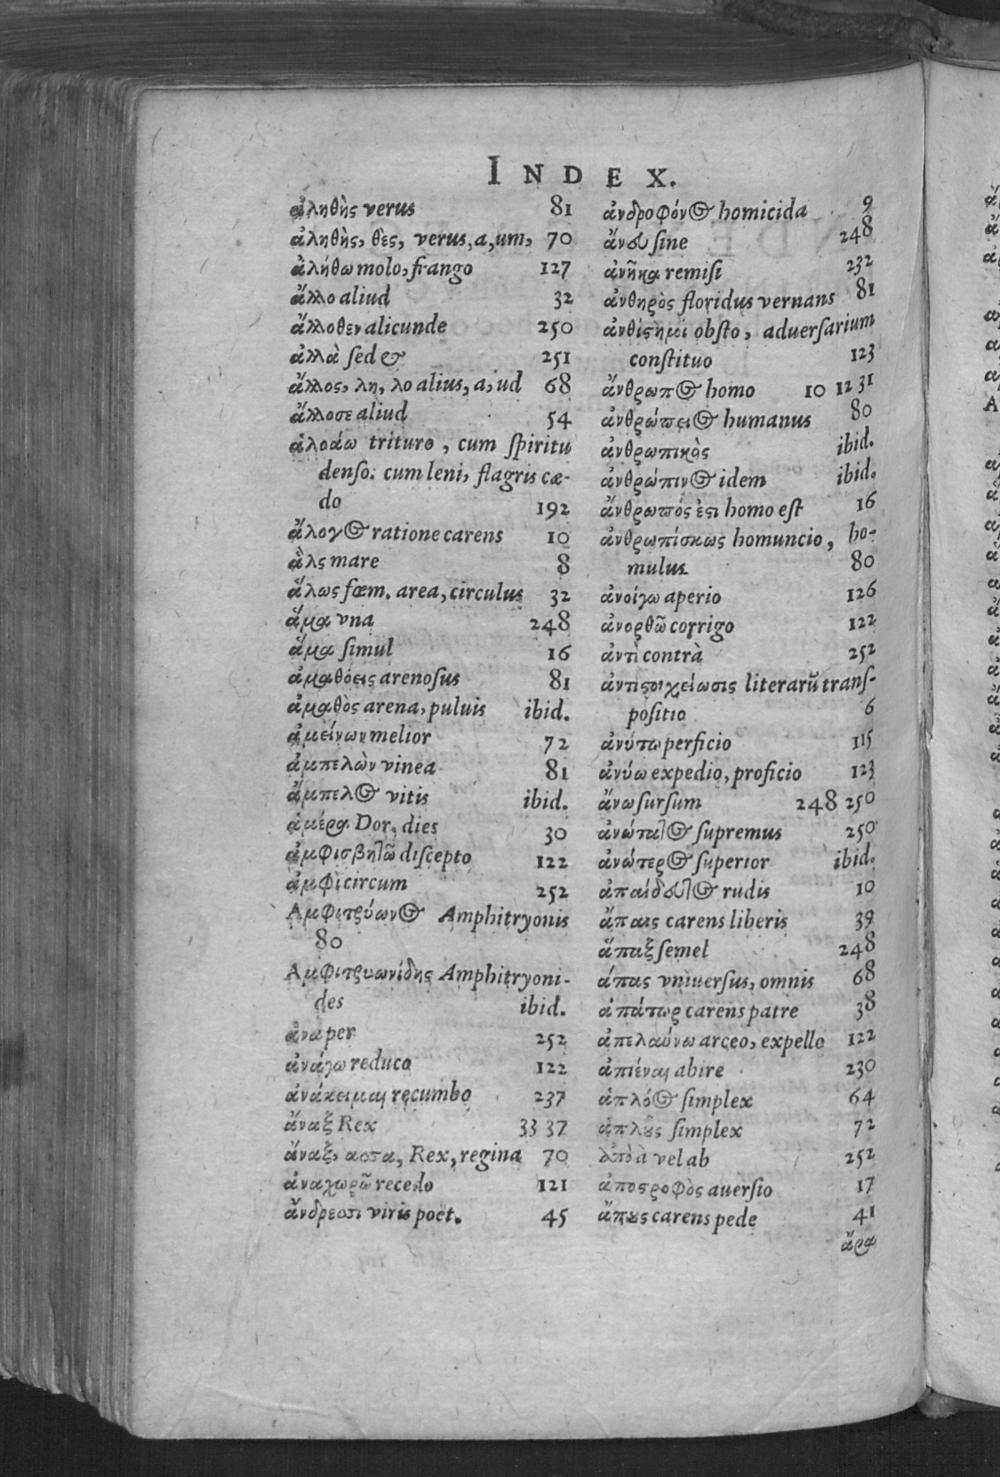 INDEX.
ἀληθὴς verus 81
ἀληθὴς, θὲς, verus, a, um, 70
ἀλήθω molo, frango 127
ἄλλο aliud 32
ἄλλοθεν alicunde 250
ἀλλὰ sed & 251
ἄλλος, λη, λο alius, a, ud 68
ἄλλοσε aliud 54
ἁλοάω trituro, cum spiritu
denso: cum leni, flagris cæ-
do 192
ἄλογος ratione carens 10
ἃλς mare 8
ἅλως fœm. area, circulus 32
ἅμα vna 248
ἅμα simul 16
ἀμαθόεις arenosus 81
ἀμαθὸς arena, puluis ibid.
ἀμείνων melior 72
ἀμπελὼν vinea 81
ἄμπελος vitis ibid.
ἁμέρα Dor, dies 30
ἀμφισβητῶ discepto 122
ἀμφὶ circum 252
Αμφιτρύωνος Amphitryonis
80
Αμφιτρυωνίδης Amphitryoni-
des ibid.
ἀνα per 252
ἀνάγω reduco 122
ἀνάκειμαι recumbo 237
ἄναξ Rex 33 37
ἄναξ, ασσα, Rex, regina 70
ἀναχωρῶ recedo 121
ἄνδρεσσι viris poet. 45
ἀνδροφόνος homicida 9
ἄνευ sine 248
ἀνῆκα remisi 232
ἀνθηρὸς floridus vernans 81
ἀνθίστημι obsto, aduersarium
constituo 123
ἄνθρωπος homo 10 12 31
ἀνθρώπειος humanus 80
ἀνθρωπικὸς ibid.
ἀνθρώπινος idem ibid.
ἄνθρωπός ἐστι homo est 16
ἀνθρωπίσκως homuncio, ho-
mulus 80
ἀνοίγω aperio 126
ἀνορθῶ corrigo 122
ἀντὶ contrà 252
ἀντιστοιχείωσις literarũ trans-
positio 6
ἀνύτω perficio 115
ἀνύω expedio, proficio 123
ἄνω sursum 248 250
ἀνώτατος supremus 250
ἀνώτερος superior ibid.
ἀπαίδευτος rudis 10
ἄπαις carens liberis 39
ἅπαξ semel 248
ἅπας vniuersus, omnis 68
ἀπάτωρ carens patre 38
ἀπελαύνω arceo, expello 122
ἀπιέναι abire 230
ἁπλόος simplex 64
ἁπλοῦς simplex 72
ἀπὸ à vel ab 252
ἀποστροφὸς auersio 17
ἄπους carens pede 41
ἄρα